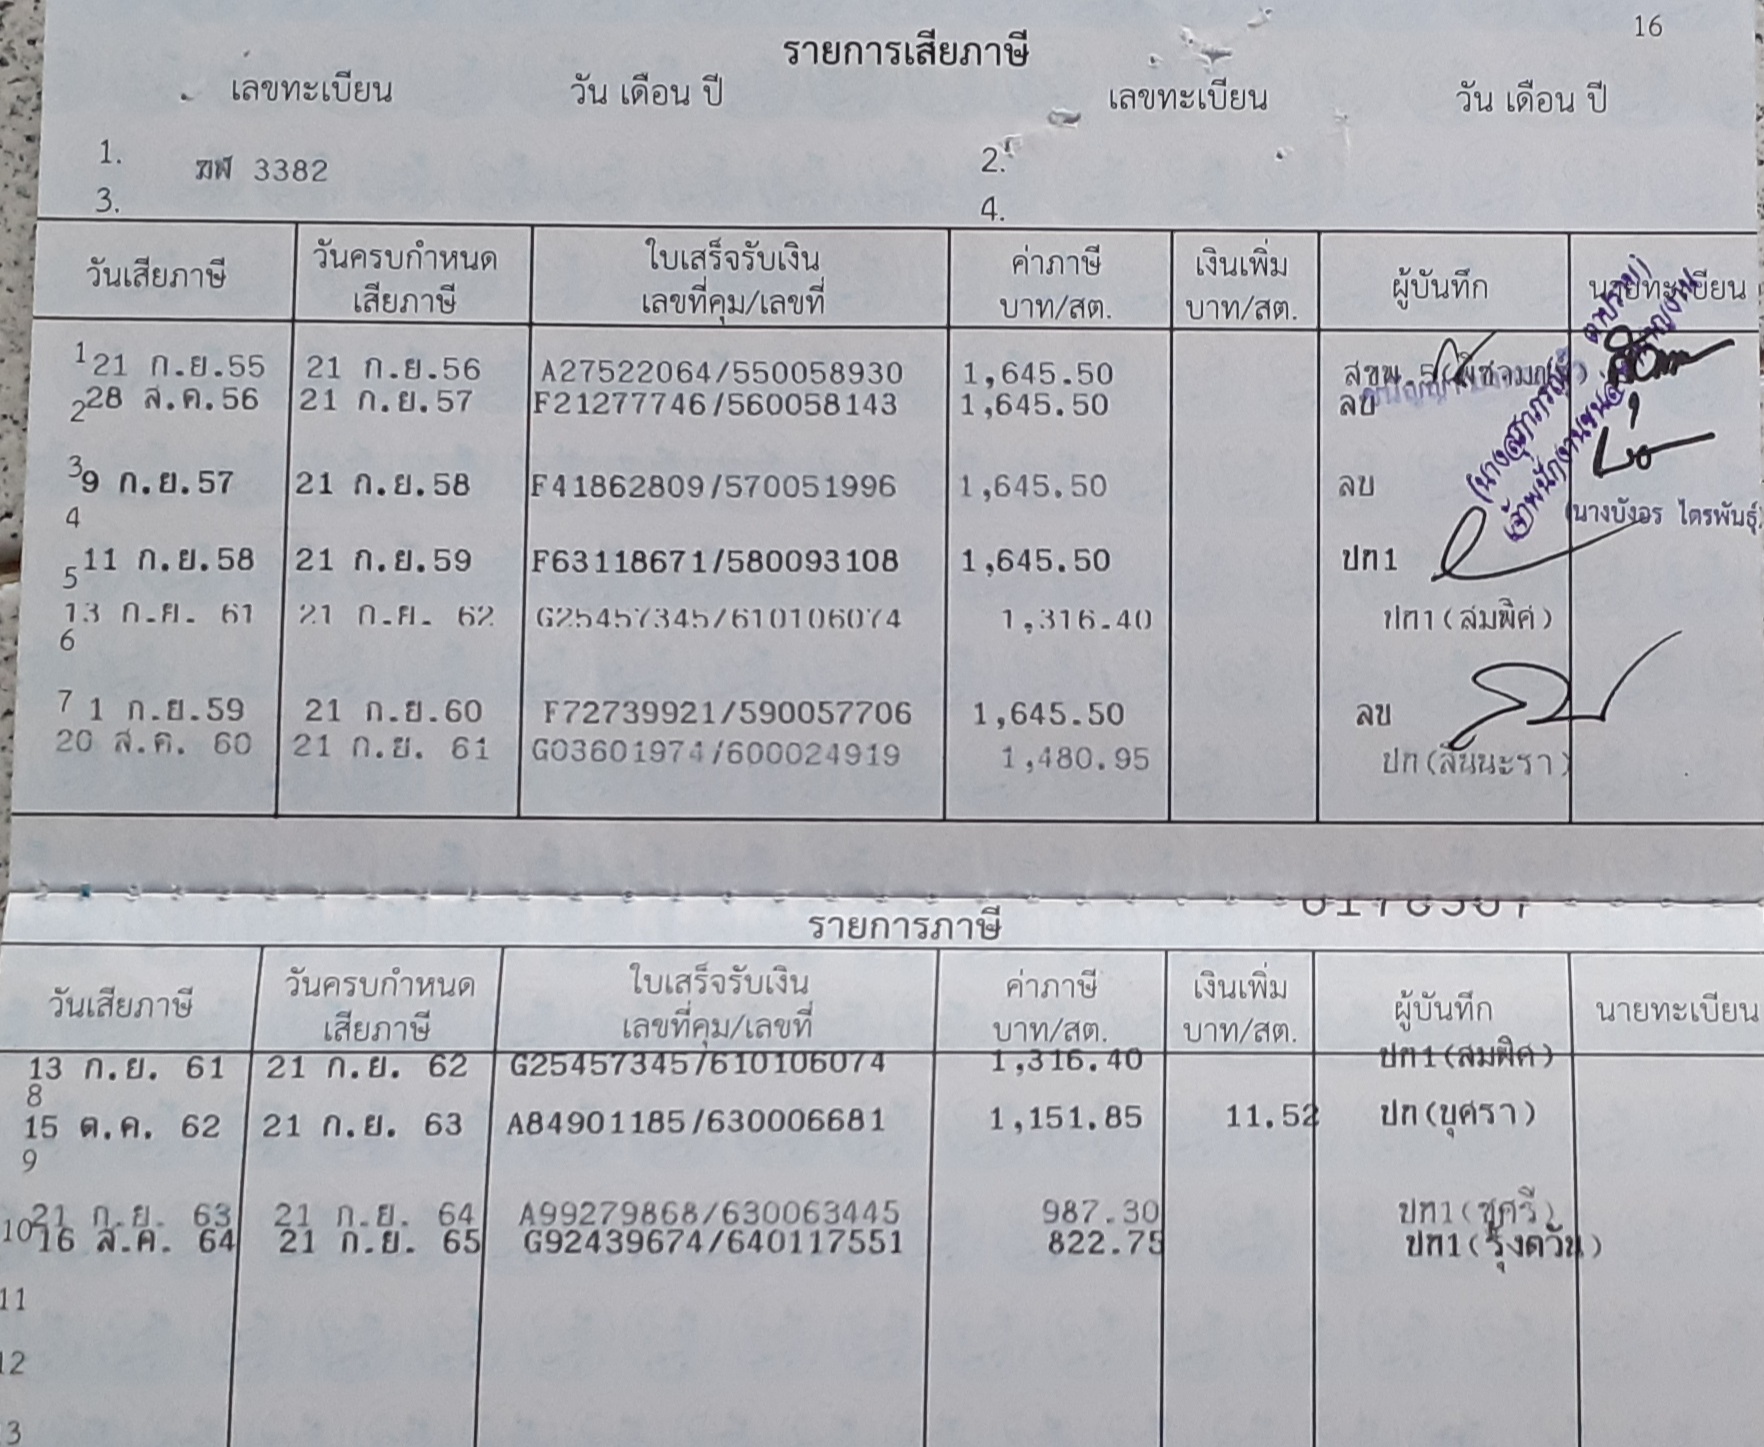 16
รายการเสียภาษี
เลขทะเบียน วัน เดือน ปี เลขทะเบียน วัน เดือน ปี
1. ฆฬ 3382 2.
3. 4.
วันเสียภาษี วันครบกำหนดเสียภาษี ใบเสร็จรับเงิน เลขที่คุม/เลขที่ ค่าภาษี บาท/สต. เงินเพิ่ม บาท/สต. ผู้บันทึก นายทะเบียน
1 21 ก.ย.55 21 ก.ย.56 A27522064/550058930 1,645.50 สขพ.5
2 28 ส.ค.56 21 ก.ย.57 F21277746/560058143 1,645.50 ลบ
3 9 ก.ย.57 21 ก.ย.58 F41862809/570051996 1,645.50 ลบ
(นางบังอร ไตรพันธุ์)
4
11 ก.ย.58 21 ก.ย.59 F63118671/580093108 1,645.50 ปก1
5
13 ก.ย. 61 21 ก.ย. 62 G25457345/610106074 1,316.40 ปก1(สมพิศ)
6
7 1 ก.ย.59 21 ก.ย.60 F72739921/590057706 1,645.50 ลบ
20 ส.ค. 60 21 ก.ย. 61 G03601974/600024919 1,480.95 ปก(ลันนะรา)
รายการภาษี
วันเสียภาษี วันครบกำหนดเสียภาษี ใบเสร็จรับเงิน เลขที่คุม/เลขที่ ค่าภาษี บาท/สต. เงินเพิ่ม บาท/สต. ผู้บันทึก นายทะเบียน
13 ก.ย. 61 21 ก.ย. 62 G25457345/610106074 1,316.40 ปก1(สมพิศ)
8
15 ต.ค. 62 21 ก.ย. 63 A84901185/630006681 1,151.85 11.52 ปก(บุศรา)
9
21 ก.ย. 63 21 ก.ย. 64 A99279868/630063445 987.30 ปก1(ชูศรี)
10 16 ส.ค. 64 21 ก.ย. 65 G92439674/640117551 822.75 ปก1(รุ้งตวัน)
11
12
3